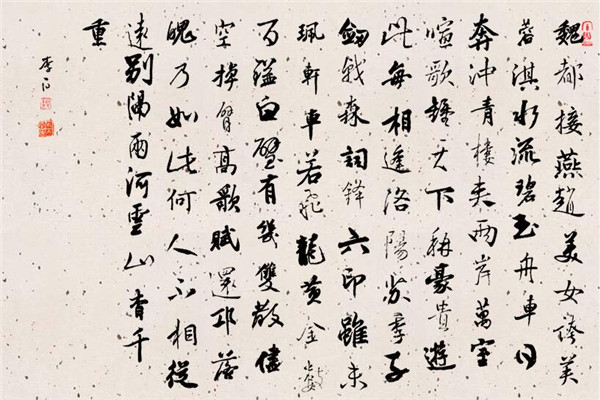 魏都接燕趙美女誇芙
蓉淇水流碧玉舟車日
奔沖青樓夾兩岸萬室
喧歌鍾天下稱豪貴遊
此每相逢洛陽蘇季子
劍戟森詞鋒六印雖未
珮軒車若飛龍黃金數
百鎰白璧有幾雙散儘
空掉臂高歌賦還邛落
魄乃如此何人不相從
遠別隔兩河雲山杳千
重
李白